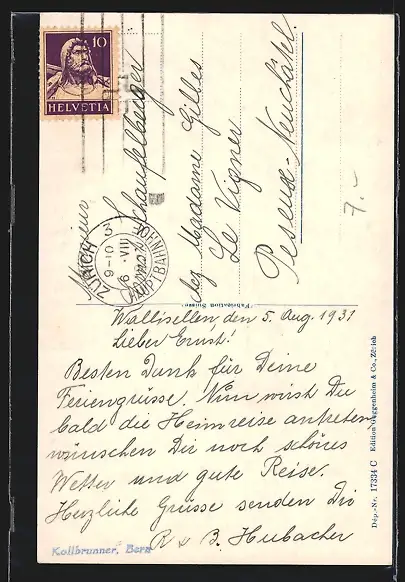 10
HELVETIA
ZÜRICH
HAUPTBAHNHOF
Monsieur
Schaufelberger
chez Madame Gilles
Le Vigner
Peseux-Neuchâtel.
7.-
Fabrication Suisse
Wallisellen, den 5. Aug. 1931
Lieber Ernst!
Besten Dank für Deine
Feriengrüsse. Nun wirst Du
bald die Heimreise antreten,
wünschen Dir noch schönes
Wetter und gute Reise.
Herzliche Grüsse senden Dir
R & B. Hubacher
Kollbrunner, Bern
Dép.-Nr. 17334 C Edition Guggenheim & Co., Zürich